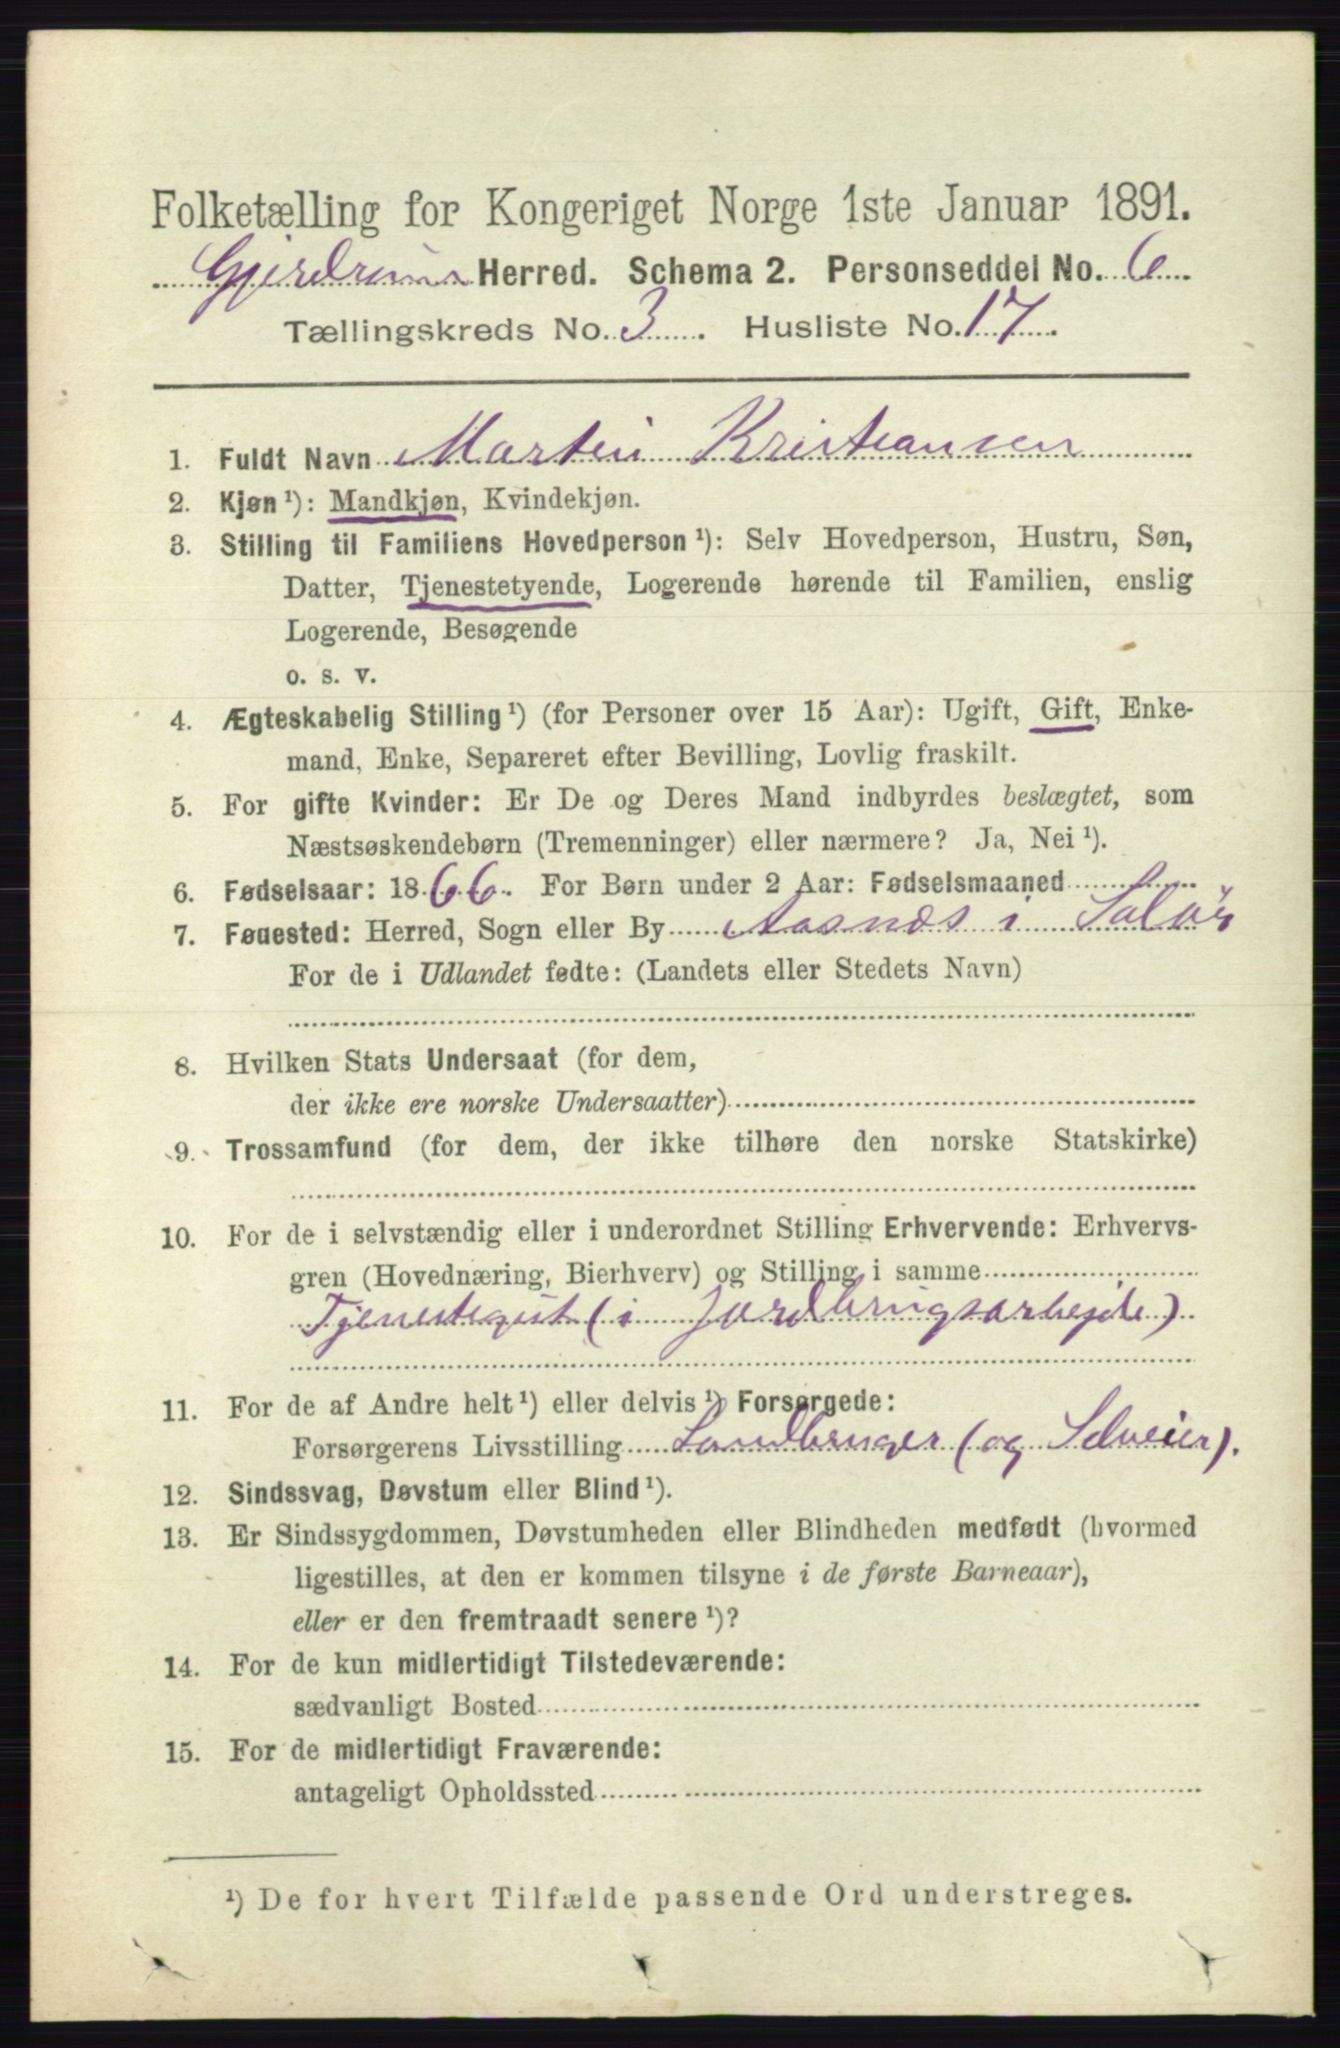 Folketælling for Kongeriget Norge 1ste Januar 1891.
Gjerdrum Herred. Schema 2. Personseddel No. 6
Tællingskreds No. 3. Husliste No. 17.
1. Fuldt Navn Martin Kristiansen
2. Kjøn ¹): Mandkjøn, Kvindekjøn.
3. Stilling til Familiens Hovedperson ¹): Selv Hovedperson, Hustru, Søn,
Datter, Tjenestetyende, Logerende hørende til Familien, enslig
Logerende, Besøgende
o. s. v.
4. Ægteskabelig Stilling ¹) (for Personer over 15 Aar): Ugift, Gift, Enke-
mand, Enke, Separeret efter Bevilling, Lovlig fraskilt.
5. For gifte Kvinder: Er De og Deres Mand indbyrdes beslægtet, som
Næstsøskendebørn (Tremenninger) eller nærmere? Ja, Nei ¹).
6. Fødselsaar: 1866. For Børn under 2 Aar: Fødselsmaaned
7. Føuested: Herred, Sogn eller By Aasnæs i Solør
For de i Udlandet fødte: (Landets eller Stedets Navn)
8. Hvilken Stats Undersaat (for dem,
der ikke ere norske Undersaatter)
9. Trossamfund (for dem, der ikke tilhøre den norske Statskirke)
10. For de i selvstændig eller i underordnet Stilling Erhvervende: Erhvervs-
gren (Hovednæring, Bierhverv) og Stilling i samme
Tjenestegut (i Jordbrugsarbejde)
11. For de af Andre helt ¹) eller delvis ¹) Forsørgede:
Forsørgerens Livsstilling Landbruger (og Selveier).
12. Sindssvag, Døvstum eller Blind ¹).
13. Er Sindssygdommen, Døvstumheden eller Blindheden medfødt (hvormed
ligestilles, at den er kommen tilsyne i de første Barneaar),
eller er den fremtraadt senere ¹)?
14. For de kun midlertidigt Tilstedeværende:
sædvanligt Bosted
15. For de midlertidigt Fraværende:
antageligt Opholdssted
¹) De for hvert Tilfælde passende Ord understreges.